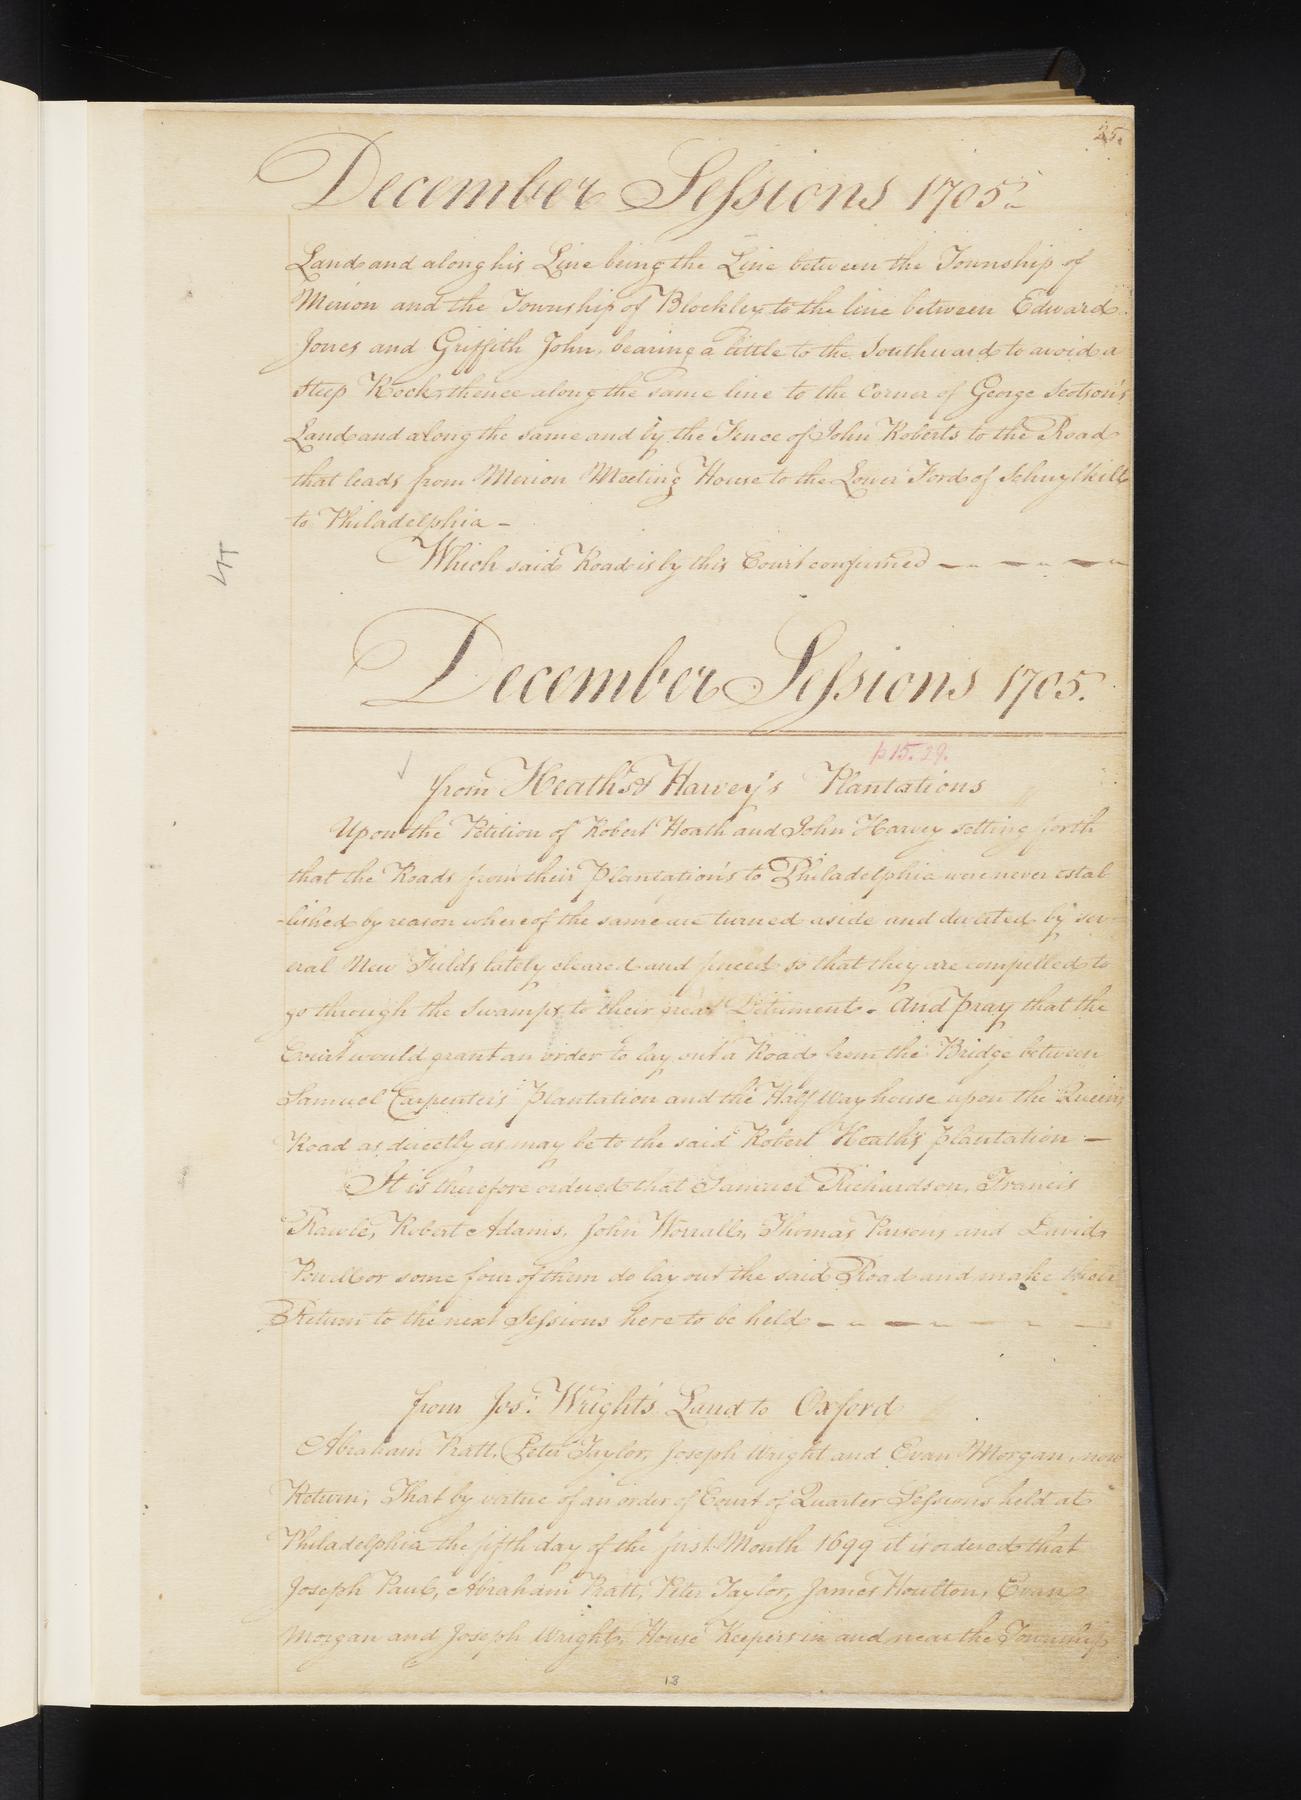 25.
December Sessions 1705.
Land and along his Line being the Line between the Township of
Merion and the Township of Blockley to the line between Edward
Jones and Griffith John, bearing a little to the Southward to avoid a
steep Rock, thence along the same line to the Corner of George Scotson's
Land and along the same and by the Fence of John Roberts to the Road
that leads from Merion Meeting House to the Lower Ford of Schuylkill
to Philadelphia -
Which said Road is by this Court confirmed
December Sessions 1705.
p 15. 29.
from Heath's & Harvey's Plantations
Upon the Petition of Robert Heath and John Harvey setting forth
that the Roads from their Plantations to Philadelphia were never estab
-lished by reason whereof the same are turned aside and diverted by sev-
eral New Fields lately cleared and fenced so that they are compelled to
go through the Swamps to their great Detriment. And pray that the
Court would grant an order to lay out a Road from the Bridge between
Samuel Carpenter's Plantation and the Half Way house upon the Queen's
Road as directly as may be to the said Robert Heath's plantation —
It is therefore ordered that Samuel Richardson, Francis
Rawle, Robert Adams, John Worrall, Thomas Parsons and David
Powell or some four of them do lay out the said Road and make their
Return to the next Sessions here to be held
from Jos: Wright's Land to Oxford
Abraham Pratt, Peter Taylor, Joseph Wright and Evan Morgan, now
Return, That by virtue of an order of Court of Quarter Sessions held at
Philadelphia the fifth day of the first Month 1699 it is ordered that
Joseph Paul, Abraham Pratt, Peter Taylor, James Houlton, Evan
Morgan and Joseph Wright, House Keepers in and near the Township
13